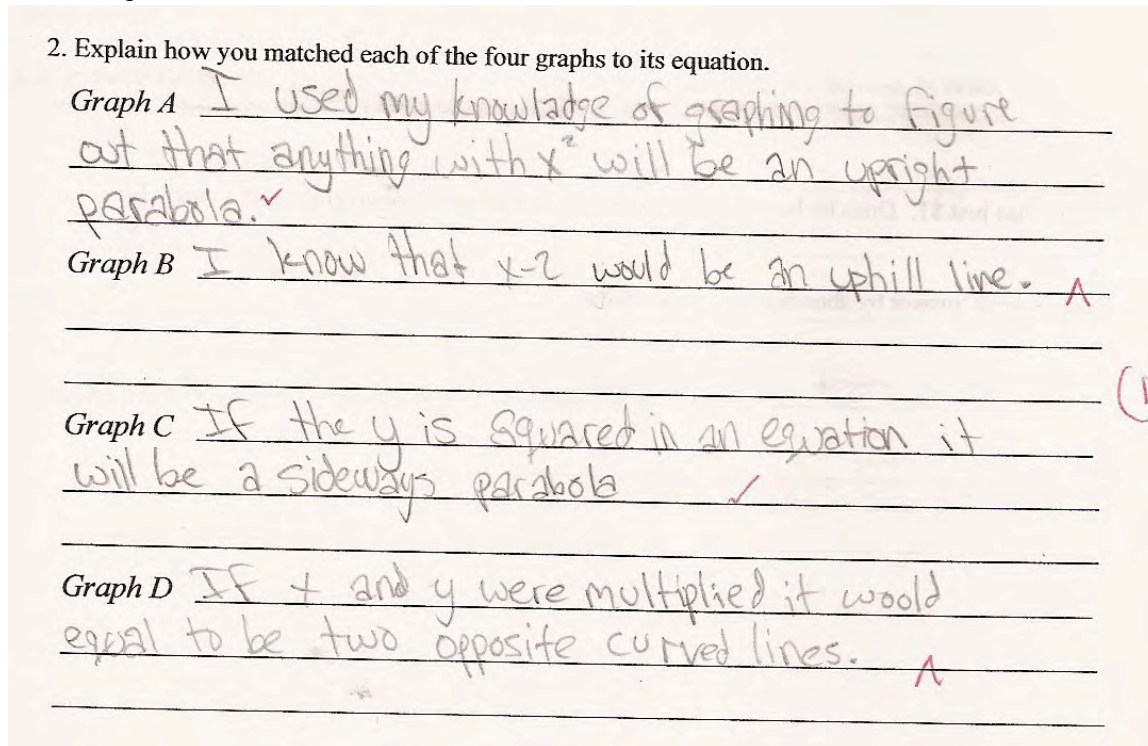 2. Explain how you matched each of the four graphs to its equation.
Graph A I used my knowladge of graphing to figure
out that anything with x² will be an upright
parabola. ✓
Graph B I know that x-2 would be an uphill line. ∧
Graph C If the y is squared in an equation it
will be a sideways parabola ✓
Graph D If x and y were multiplied it woold
equal to be two opposite curved lines. ∧